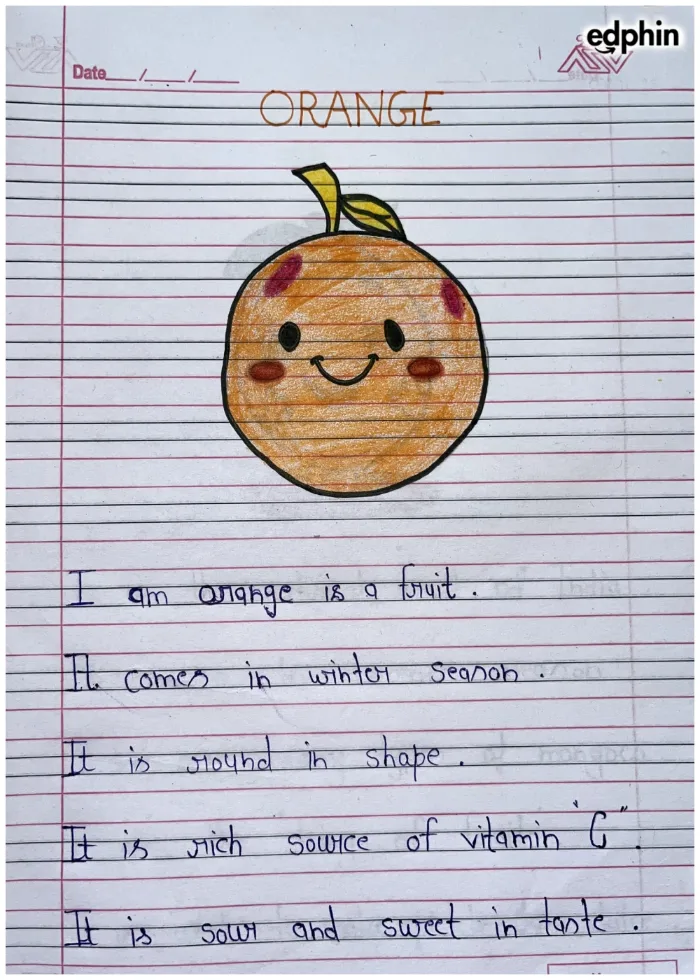 edphin
Date___/___/___
ORANGE
I am orange is a fruit.
It comes in winter season.
It is round in shape.
It is rich source of vitamin "C".
It is sour and sweet in taste.